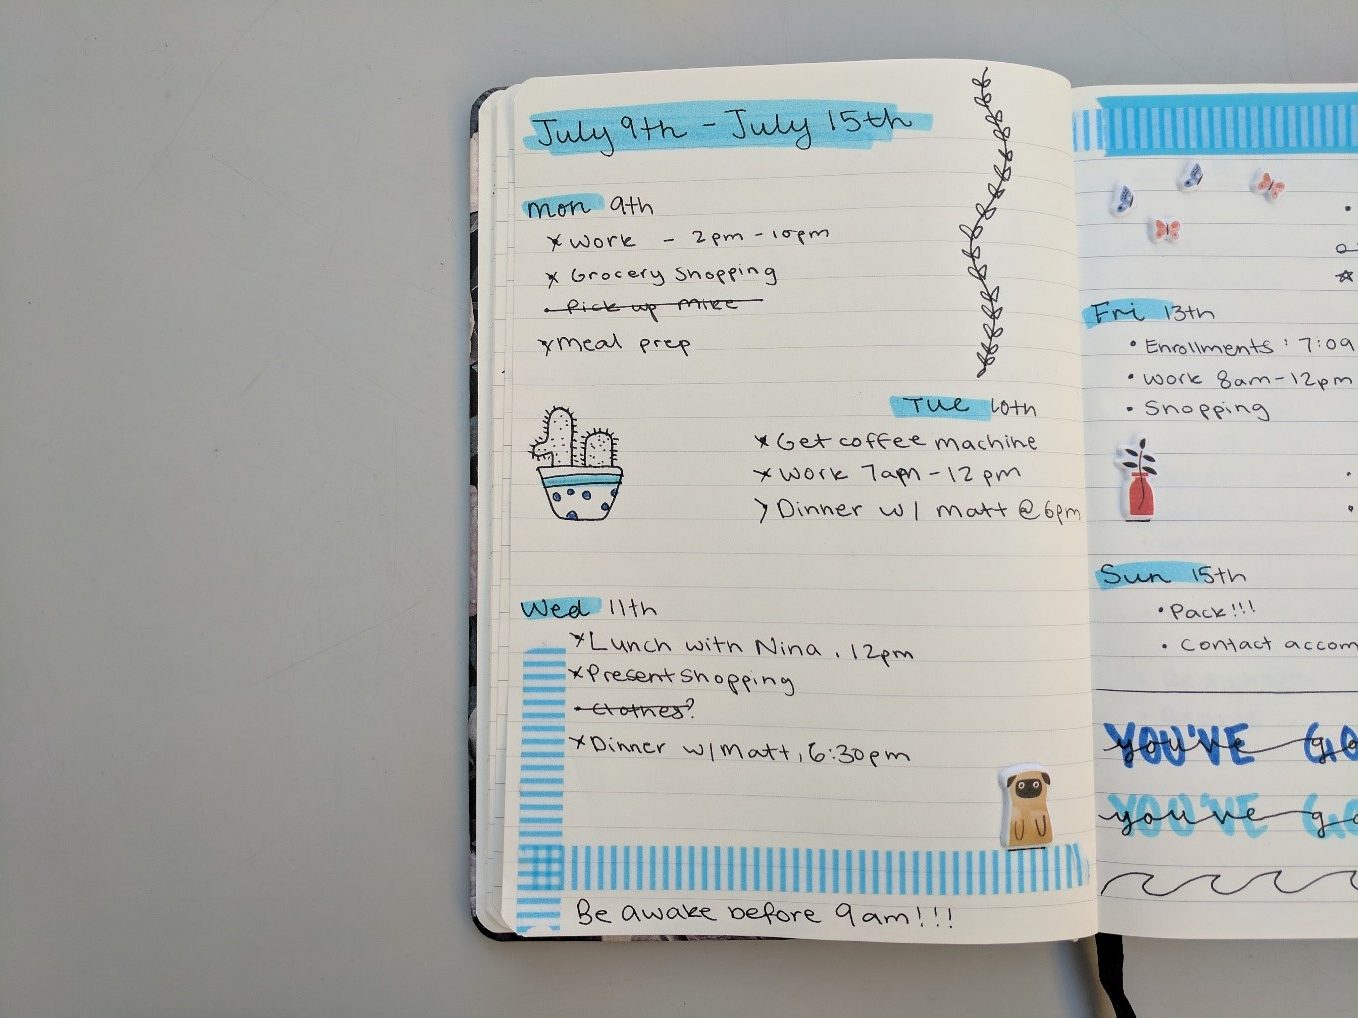 July 9th - July 15th
Mon 9th
x Work - 2pm - 10pm
x Grocery Shopping
• Pick up Mike
x Meal prep
Tue 10th
x Get coffee machine
x Work 7am - 12 pm
> Dinner w/ Matt @ 6pm
Wed 11th
x Lunch with Nina . 12pm
x Present shopping
• Clothes?
x Dinner w/ Matt, 6:30pm
Be awake before 9am!!!
Fri 13th
• Enrollments : 7:09
• Work 8am - 12pm
• Shopping
Sun 15th
• Pack!!!
• Contact accom
YOU'VE GO
you've go
YOU'VE GO
you've go